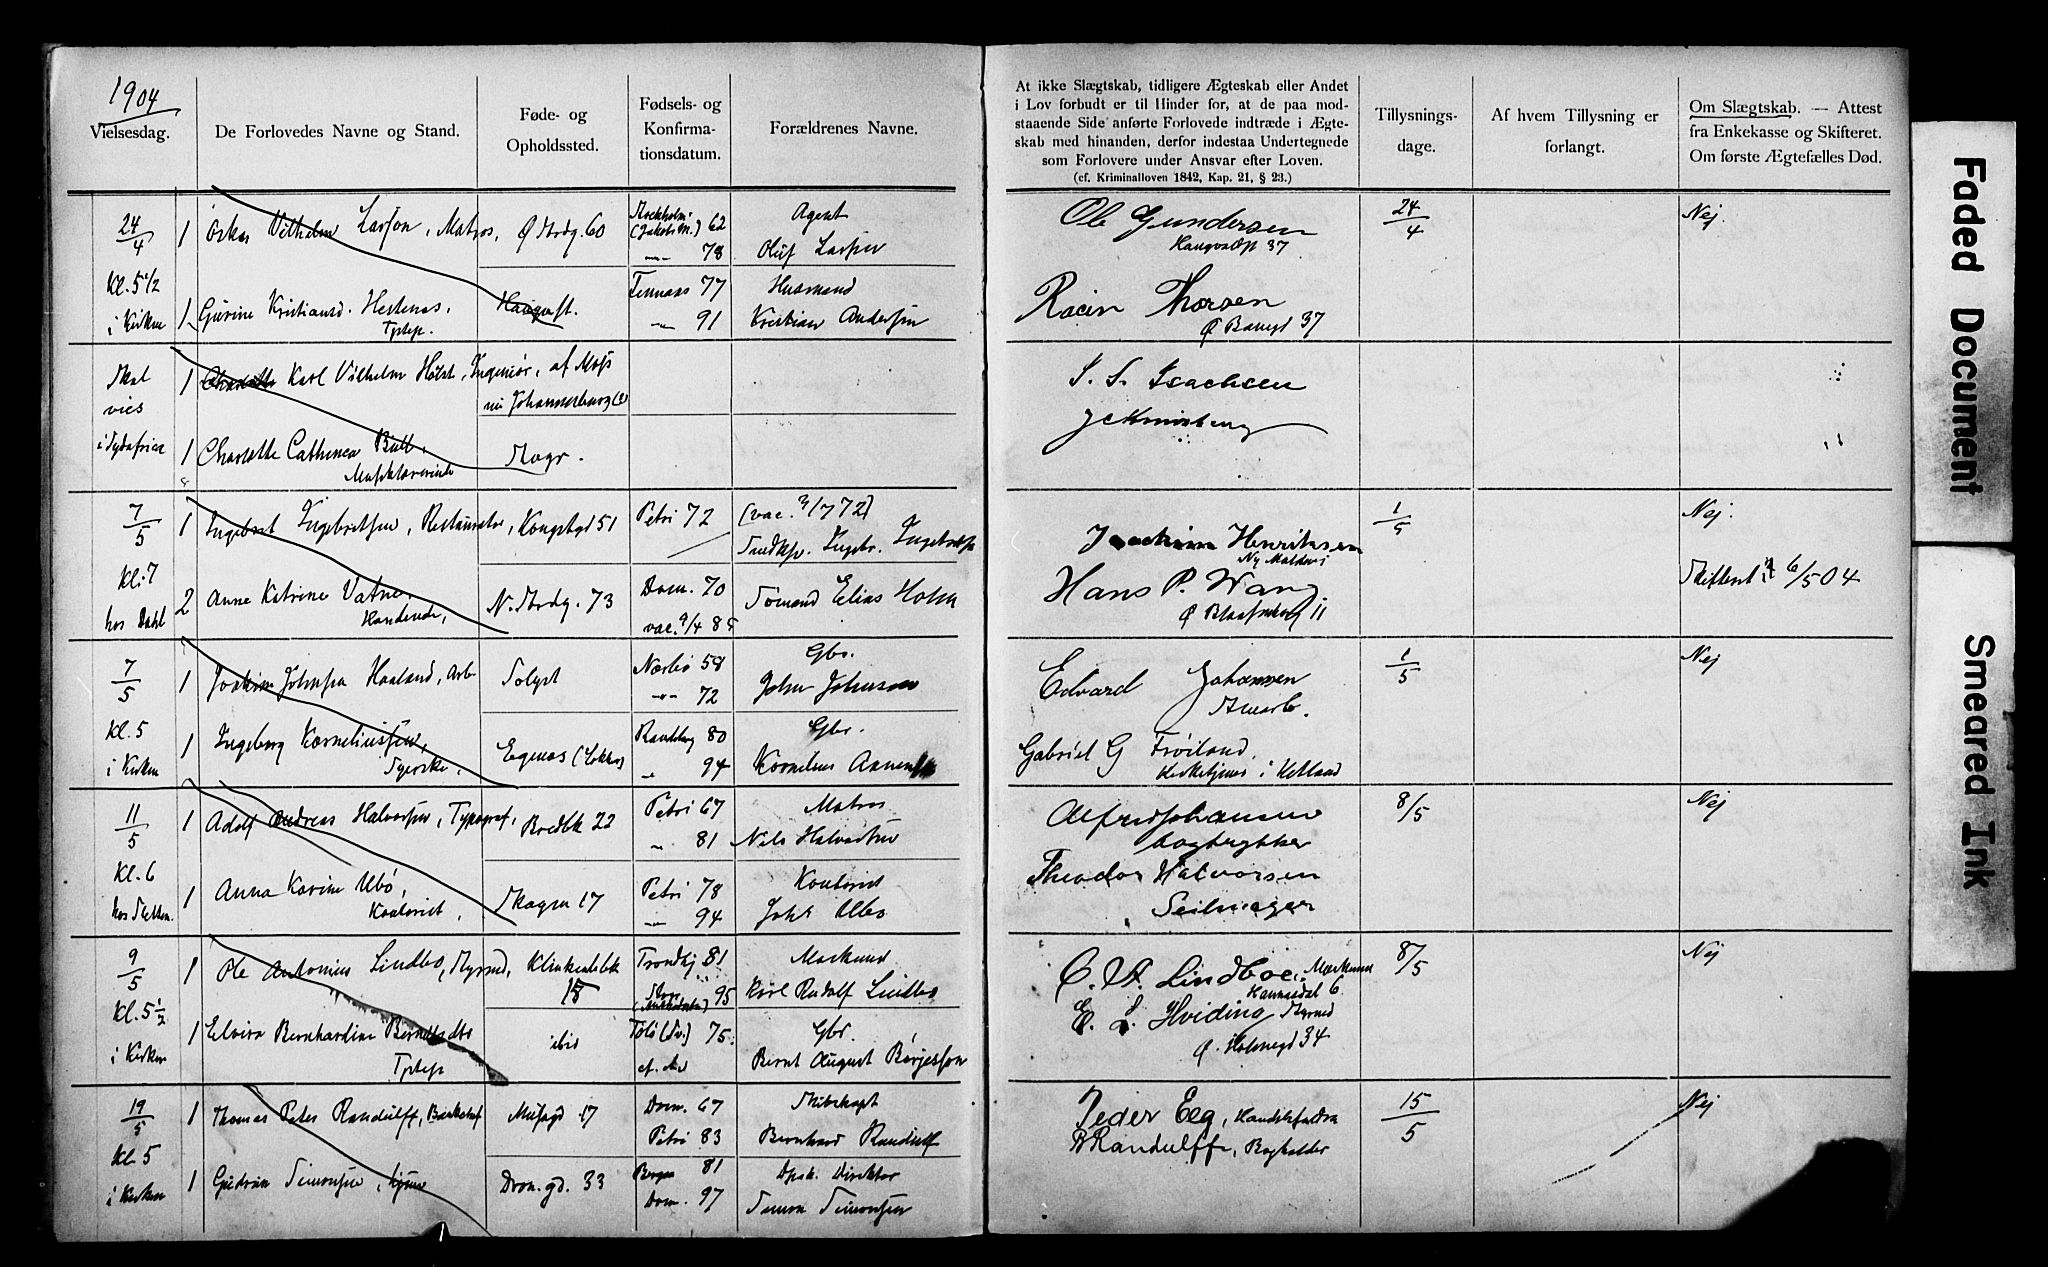 1904
Vielsesdag.
De Forlovedes Navne og Stand.
Føde- og
Opholdssted.
Fødsels- og
Konfirma-
tionsdatum.
Forældrenes Navne.
24/4
1
Oskar Vilhelm Larson, Matros,
Ø Strdg. 60
Stockholm 62
78
Agent
Oluf Larsen
Kl. 5 1/2
i Kirken
1
Gurine Kristiansd. Hestenæs,
77
91
Husmand
Kristian Andersen
Skal
vies
i Sydafrica
1
Karl Vilhelm Holst, Ingeniør, af Moss
nu Johannesburg
1
Charlotte Cathinca Bull,
Musiklærerinde
7/5
1
Ingebret Ingebretsen, Restauratør,
Kongsgd 51
Petri 72
Ingebr. Ingebretsen
Kl. 7
hos Dahl
2
Anne Katrine Vatne,
Handlende,
N. Strdg. 73
Dom. 70
vac. 9/4 85
Sømand Elias Holm
7/5
1
Joakim Johnsen Haaland, Arb
Solyst
Nærbø 58
72
Gbr.
John Johnsen
Kl. 5
i Kirken
1
Ingeborg Korneliussen,
Syerske,
Egenæs
80
94
Gbr.
Kornelius
11/5
1
Adolf Andreas Halvorsen, Typograf,
Bredbk 22
Petri 67
81
Matros
Nils Halvorsen
Kl. 6
1
Anna Karine Ubø,
Kontorist,
Skagen 17
Petri 78
94
Kontorist
Ubø
9/5
1
Ole Antonius Lindbo, Styrmd,
Klinkenbbk
18
Trondhj 81
95
Karl Rudolf Lindbo
Kl. 5 1/2
i Kirken
1
Elvira Bernhardine Berndtsdtr
ibid
Tölö (Sv.) 75.
Gbr.
Bernt August Börjesson
19/5
1
Thomas Peter Randulff,
Musegd 17
Dom. 67
Petri 83
Skibskapt
Bernhard Randulff
Kl. 5
i Kirken
1
Gudrun Simonsen, hjme
Dron. gd. 33
Bergen 81
Dom. 97
Direktør
Simon Simonsen
At ikke Slægtskab, tidligere Ægteskab eller Andet
i Lov forbudt er til Hinder for, at de paa mod-
staaende Side anførte Forlovede indtræde i Ægte-
skab med hinanden, derfor indestaa Undertegnede
som Forlovere under Ansvar efter Loven.
(cf. Kriminalloven 1842, Kap. 21, § 23.)
Tillysnings-
dage.
Af hvem Tillysning er
forlangt.
Om Slægtskab. — Attest
fra Enkekasse og Skifteret.
Om første Ægtefælles Død.
Ole Gundersen
37
24/4
Nej.
Thorsen
37
S. S. Isachsen
Joachim Henriksen
1/5
Nej.
Hans P. Wang
Ø Blaasenborg 11
Skifteret 6/5 04
Edvard Johannsen
1/5
Nej
Gabriel G Frøiland,
Kirketjener i Hetland
Alfred Johansen
bogtrykker
8/5
Nej
Theodor Halvorsen
Seilmager
C. A. Lindboe,
6.
8/5
Nej
E. L. Hviding Styrmd
Ø. Holmegd 34
Peder Eeg,
15/5
Nej
Randulff, Bogholder
Faded Document
Smeared Ink